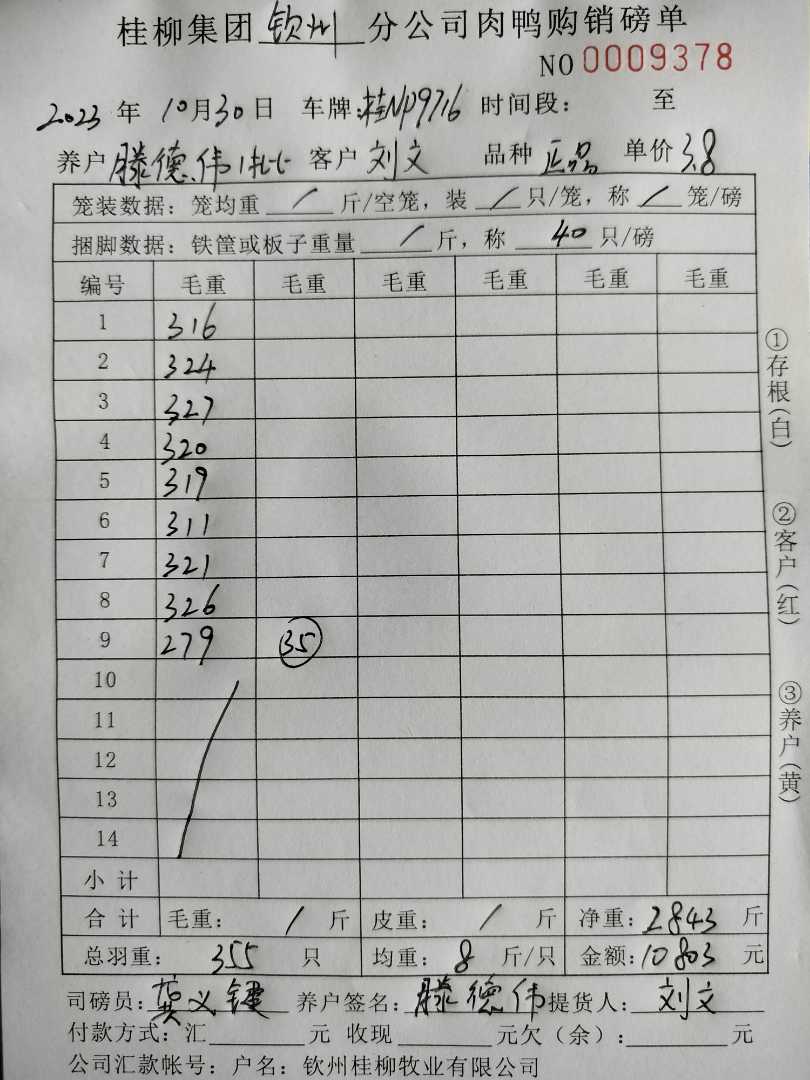 桂柳集团 钦州 分公司肉鸭购销磅单
NO 0009378
2023 年 10月30日 车牌:桂NP9716 时间段: 至
养户 滕德伟 客户 刘文 品种 正品 单价 3.8
笼装数据: 笼均重 / 斤/空笼, 装 / 只/笼, 称 / 笼/磅
捆脚数据: 铁筐或板子重量 / 斤, 称 40 只/磅
编号 毛重 毛重 毛重 毛重 毛重 毛重
1 316
2 324
3 327
4 320
5 319
6 311
7 321
8 326
9 279 35
10
11
12
13
14
小计
合计 毛重: / 斤 皮重: / 斤 净重: 2843 斤
总羽重: 355 只 均重: 8 斤/只 金额: 10803 元
司磅员: 龚义键 养户签名: 滕德伟 提货人: 刘文
付款方式: 汇 元 收现 元欠（余）: 元
公司汇款帐号: 户名: 钦州桂柳牧业有限公司
①存根(白)
②客户(红)
③养户(黄)